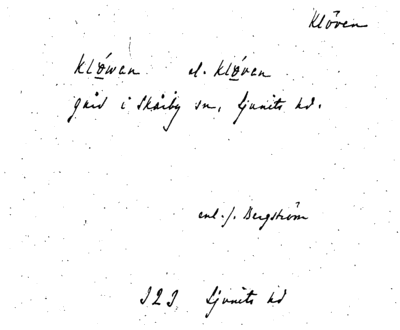 Klöven
Klówen el. Klóven
gård i Skårby sn, Ljunits hd.
enl. J. Bergström
Ljunits hd